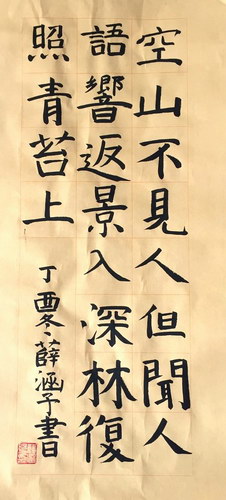 空山不見人但聞人
語響返景入深林復
照青苔上
丁酉冬薛涵子書